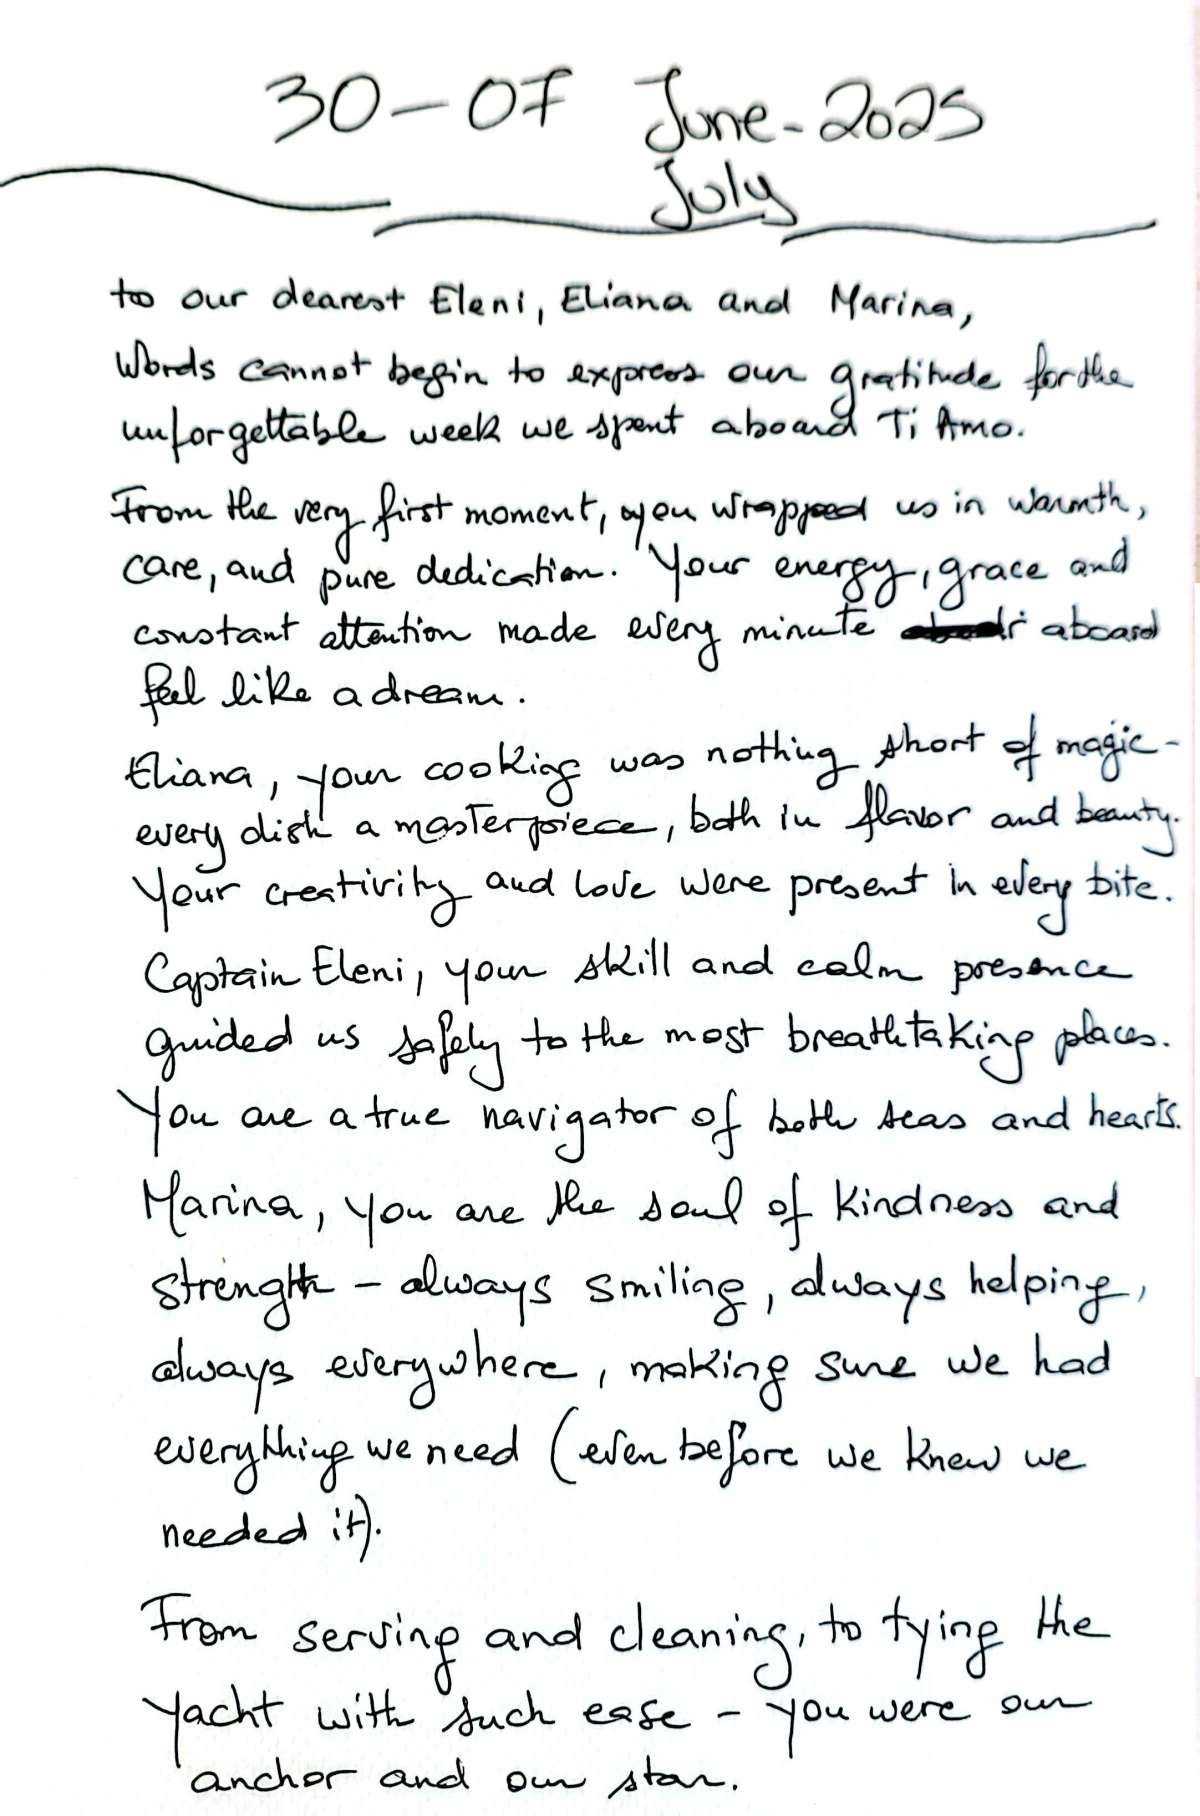 30-07 June-2025
July
to our dearest Eleni, Eliana and Marina,
Words cannot begin to express our gratitude for the
unforgettable week we spent aboard Ti Amo.
From the very first moment, you wrapped us in warmth,
care, and pure dedication. Your energy, grace and
constant attention made every minute aboard
feel like a dream.
Eliana, your cooking was nothing short of magic -
every dish a masterpiece, both in flavor and beauty.
Your creativity and love were present in every bite.
Captain Eleni, your skill and calm presence
guided us safely to the most breathtaking places.
You are a true navigator of both seas and hearts.
Marina, you are the soul of kindness and
strength - always smiling, always helping,
always everywhere, making sure we had
everything we need (even before we knew we
needed it).
From serving and cleaning, to tying the
yacht with such ease - you were our
anchor and our star.